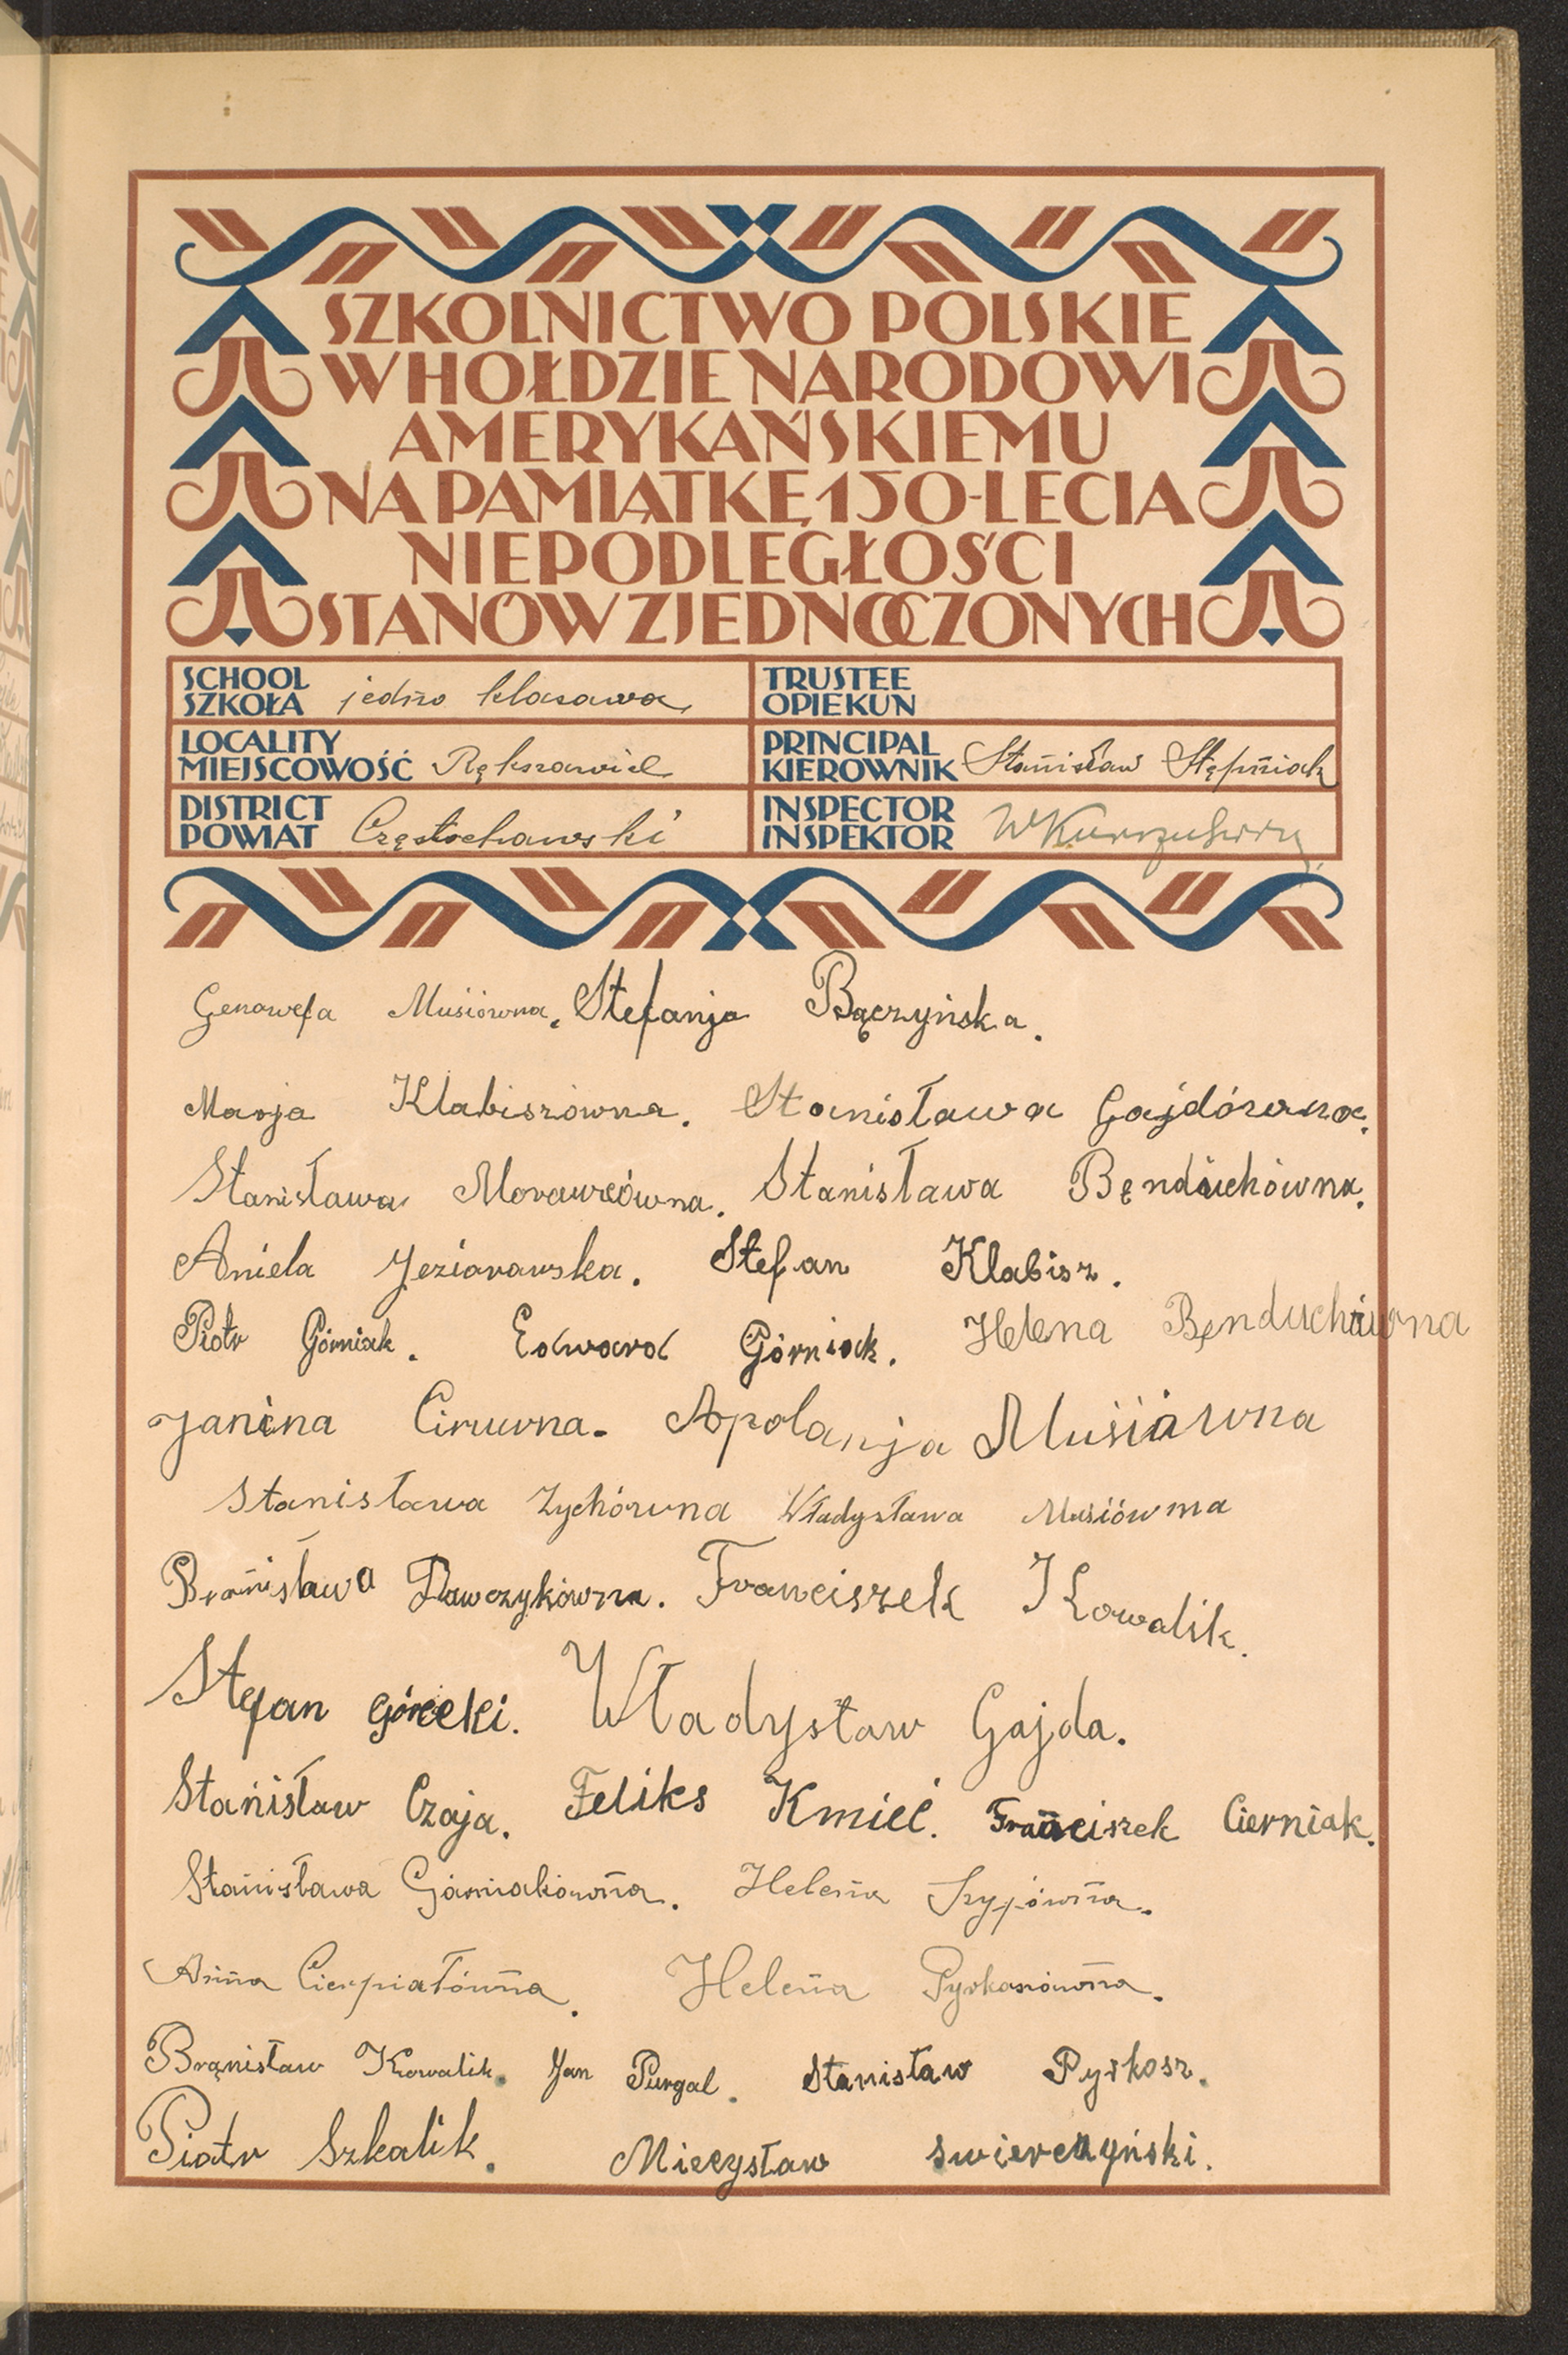 SZKOLNICTWO POLSKIE
W HOŁDZIE NARODOWI
AMERYKAŃSKIEMU
NA PAMIĄTKĘ 150-LECIA
NIEPODLEGŁOŚCI
STANÓW ZJEDNOCZONYCH
SCHOOL
SZKOŁA jedno klasowa
TRUSTEE
OPIEKUN
LOCALITY
MIEJSCOWOŚĆ Rększowice
PRINCIPAL
KIEROWNIK Stanisław Stępniak
DISTRICT
POWIAT Częstochowski
INSPECTOR
INSPEKTOR
Genowefa Musiówna. Stefanja Bączyńska.
Marja Klabiszówna. Stanisława Gajdówna.
Stanisława Morawcówna. Stanisława Bęnduchówna.
Aniela Jeziorowska. Stefan Klabisz.
Piotr Górniak. Edward Górniak. Helena Bęnduchówna
Janina Ciruwna. Apolanja Musiówna
Stanisława Zychówna Władysława Musiówna
Bronisława Pawczykówna. Franciszek Kowalik.
Stefan Górecki. Władysław Gajda.
Stanisław Czaja. Feliks Kmieć. Franciszek Cierniak.
Stanisława Górniakówna. Helena Szyjówna.
Anna Cierpiałówna. Helena Pyrkoszówna.
Bronisław Kowalik. Jan Purgal. Stanisław Pyrkosz.
Piotr Szkalik. Miecysław swierczyński.